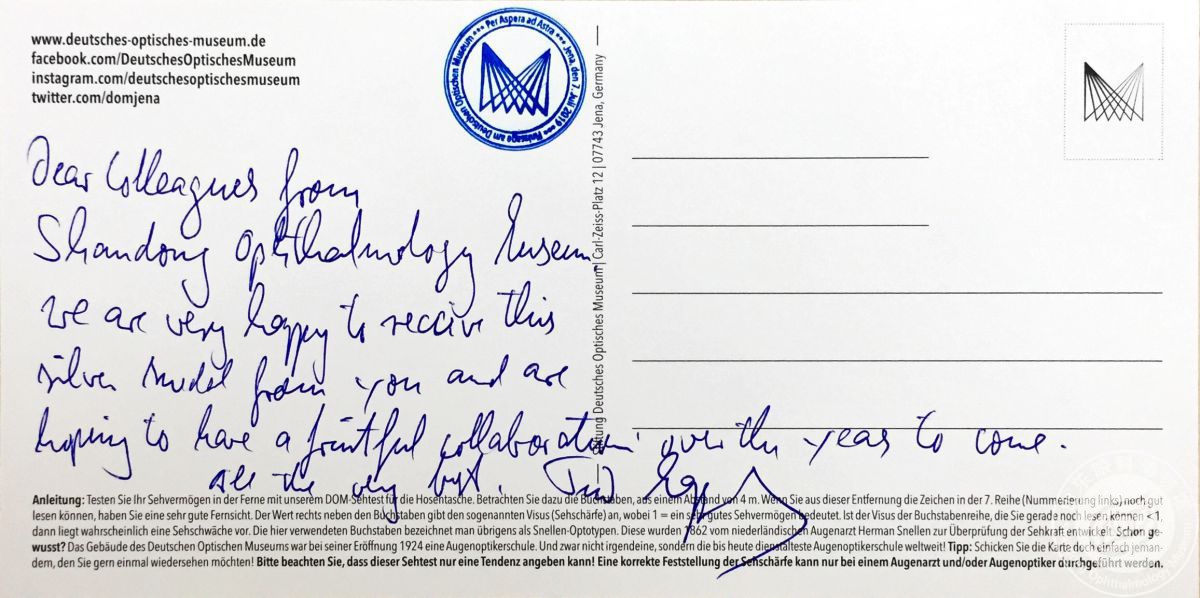 www.deutsches-optisches-museum.de
facebook.com/DeutschesOptischesMuseum
instagram.com/deutschesoptischesmuseum
twitter.com/domjena
Per Aspera ad Astra *** Jena, den 7. Juli 2019 *** am Deutschen Optischen Museum ***
Dear Colleagues from
Shandong Ophthalmology Museum
we are very happy to receive this
silver model from you and are
hoping to have a fruitful collaboration over the years to come.
All the very best.
Stiftung Deutsches Optisches Museum | Carl-Zeiss-Platz 12 | 07743 Jena, Germany
Anleitung: Testen Sie Ihr Sehvermögen in der Ferne mit unserem DOM-Sehtest für die Hosentasche. Betrachten Sie dazu die Buchstaben, aus einem Abstand von 4 m. Wenn Sie aus dieser Entfernung die Zeichen in der 7. Reihe (Nummerierung links) noch gut
lesen können, haben Sie eine sehr gute Fernsicht. Der Wert rechts neben den Buchstaben gibt den sogenannten Visus (Sehschärfe) an, wobei 1 = ein sehr gutes Sehvermögen bedeutet. Ist der Visus der Buchstabenreihe, die Sie gerade noch lesen können < 1,
dann liegt wahrscheinlich eine Sehschwäche vor. Die hier verwendeten Buchstaben bezeichnet man übrigens als Snellen-Optotypen. Diese wurden 1862 vom niederländischen Augenarzt Herman Snellen zur Überprüfung der Sehkraft entwickelt. Schon ge-
wusst? Das Gebäude des Deutschen Optischen Museums war bei seiner Eröffnung 1924 eine Augenoptikerschule. Und zwar nicht irgendeine, sondern die bis heute dienstälteste Augenoptikerschule weltweit! Tipp: Schicken Sie die Karte doch einfach jeman-
dem, den Sie gern einmal wiedersehen möchten! Bitte beachten Sie, dass dieser Sehtest nur eine Tendenz angeben kann! Eine korrekte Feststellung der Sehschärfe kann nur bei einem Augenarzt und/oder Augenoptiker durchgeführt werden.